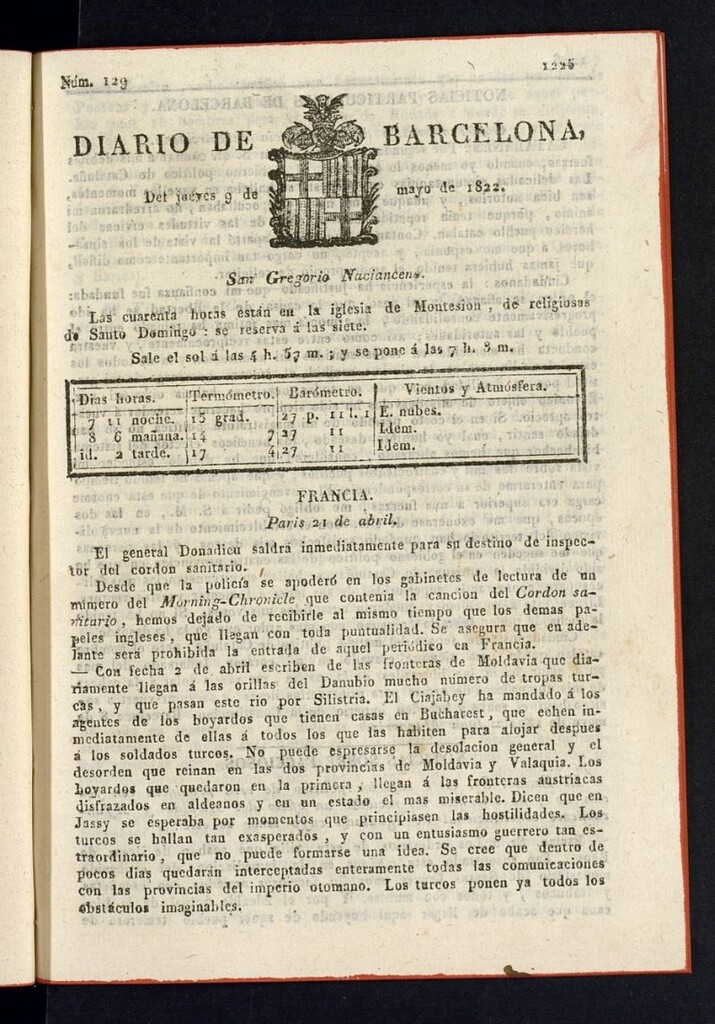 Núm. 129
1225
DIARIO DE BARCELONA,
Del jueves 9 de mayo de 1822.
San Gregorio Nacianceno.
Las cuarenta horas están en la iglesia de Montesion, de religiosas
de Santo Domingo: se reserva á las siete.
Sale el sol á las 4 h. 57 m.; y se pone á las 7 h. 8 m.
Dias horas. Termómetro. Barómetro. Vientos y Atmósfera.
7 11 noche. 15 grad. 27 p. 11 l. 1 E. nubes.
8 6 mañana. 14 7 27 11 Idem.
id. 2 tarde. 17 4 27 11 Idem.
FRANCIA.
Paris 21 de abril.
El general Donadieu saldrá inmediatamente para su destino de inspec-
tor del cordon sanitario.
Desde que la policía se apoderó en los gabinetes de lectura de un
número del Morning-Chronicle que contenia la cancion del Cordon sa-
nitario, hemos dejado de recibirle al mismo tiempo que los demas pa-
peles ingleses, que llegan con toda puntualidad. Se asegura que en ade-
lante será prohibida la entrada de aquel periódico en Francia.
— Con fecha 2 de abril escriben de las fronteras de Moldavia que dia-
riamente llegan á las orillas del Danubio mucho número de tropas tur-
cas, y que pasan este rio por Silistria. El Ciajabey ha mandado á los
agentes de los boyardos que tienen casas en Bucharest, que echen in-
mediatamente de ellas á todos los que las habiten para alojar despues
á los soldados turcos. No puede espresarse la desolacion general y el
desorden que reinan en las dos provincias de Moldavia y Valaquia. Los
boyardos que quedaron en la primera, llegan á las fronteras austriacas
disfrazados en aldeanos y en un estado el mas miserable. Dicen que en
Jassy se esperaba por momentos que principiasen las hostilidades. Los
turcos se hallan tan exasperados, y con un entusiasmo guerrero tan es-
traordinario, que no puede formarse una idea. Se cree que dentro de
pocos dias quedarán interceptadas enteramente todas las comunicaciones
con las provincias del imperio otomano. Los turcos ponen ya todos los
obstáculos imaginables.